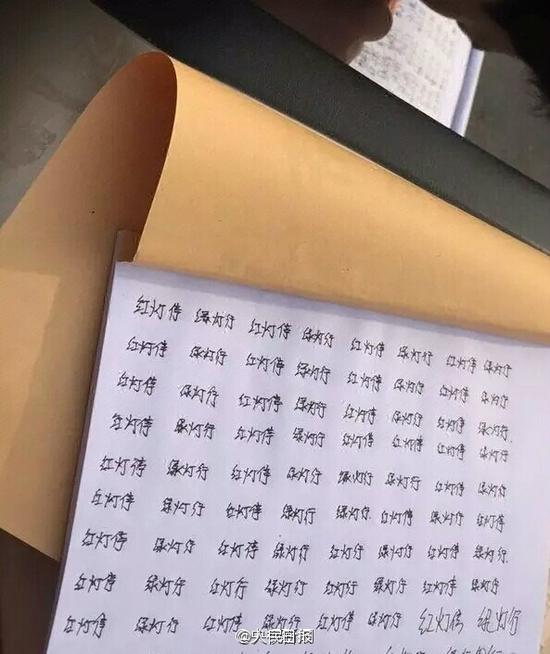 红灯停 绿灯行 红灯停 绿灯行 红灯停 绿灯行 红灯停 绿灯行
红灯停 绿灯行 红灯停 绿灯行 红灯停 绿灯行 红灯停 绿灯行
红灯停 绿灯行 红灯停 绿灯行 红灯停 绿灯行 红灯停 绿灯行.
红灯停 绿灯行 红灯停 绿灯行 红灯行 红灯停 红灯停 绿灯行
红灯停 绿灯行 红灯停 绿灯行 绿灯行 绿灯行 红灯停 绿灯行
红灯停 绿灯行 红灯停 绿灯行 绿灯行 红灯停 绿灯行 红灯停
红灯停 绿灯行 红灯停 绿灯行 红灯行 绿灯行 红灯停 绿灯行.
红灯停 绿灯行 红灯行 绿灯行 红灯行 绿灯行 红灯停 绿灯行
红灯停 绿灯行 红灯停 绿灯行 红灯停 绿灯行 红灯停 绿灯行
@人民日报